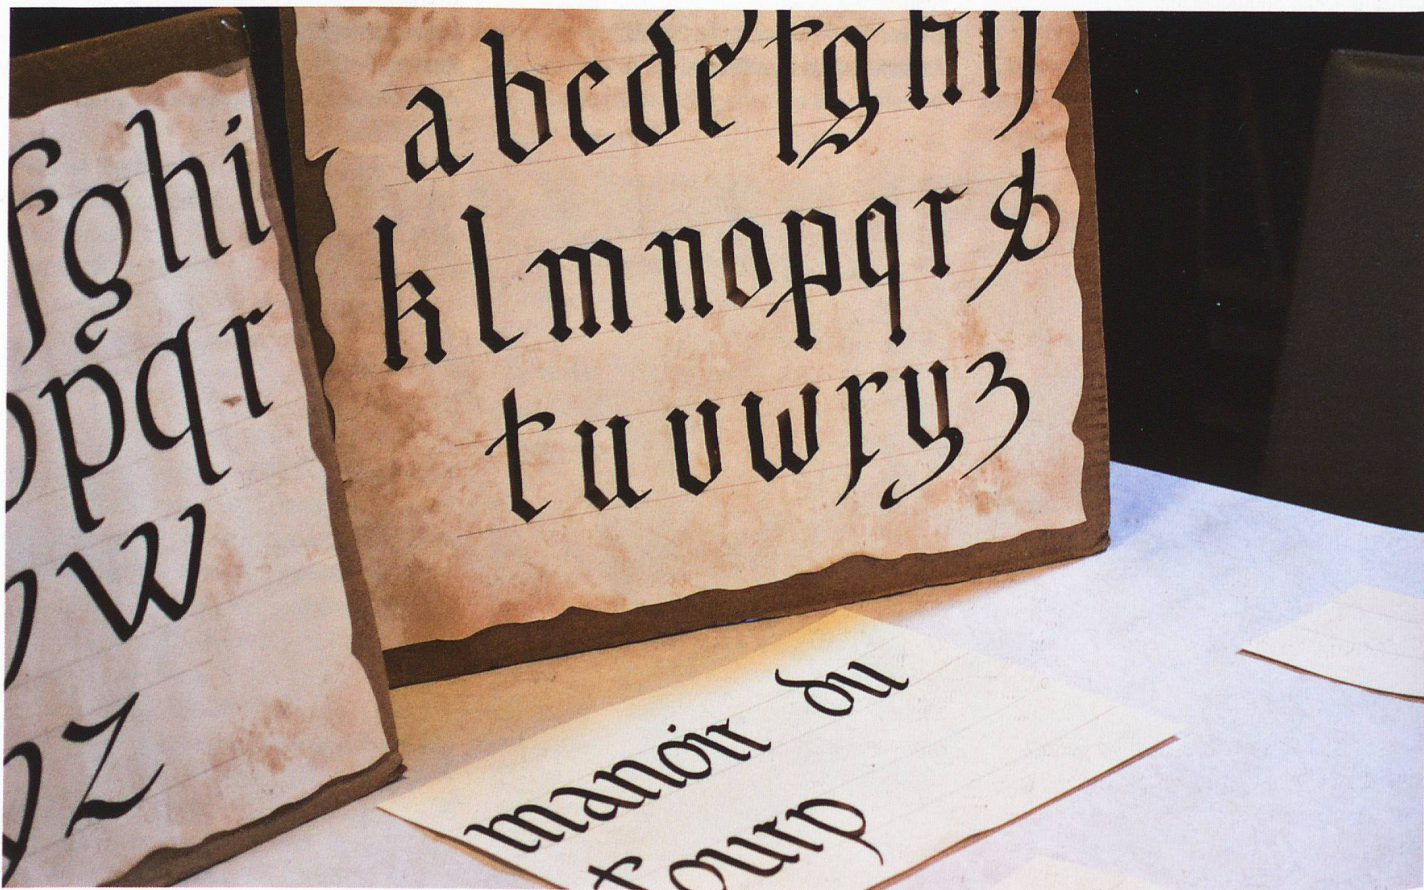 fghi
opqr
vw
yz
abcdefghij
klmnopqrs
tuvwxyz
manoir du
tourp